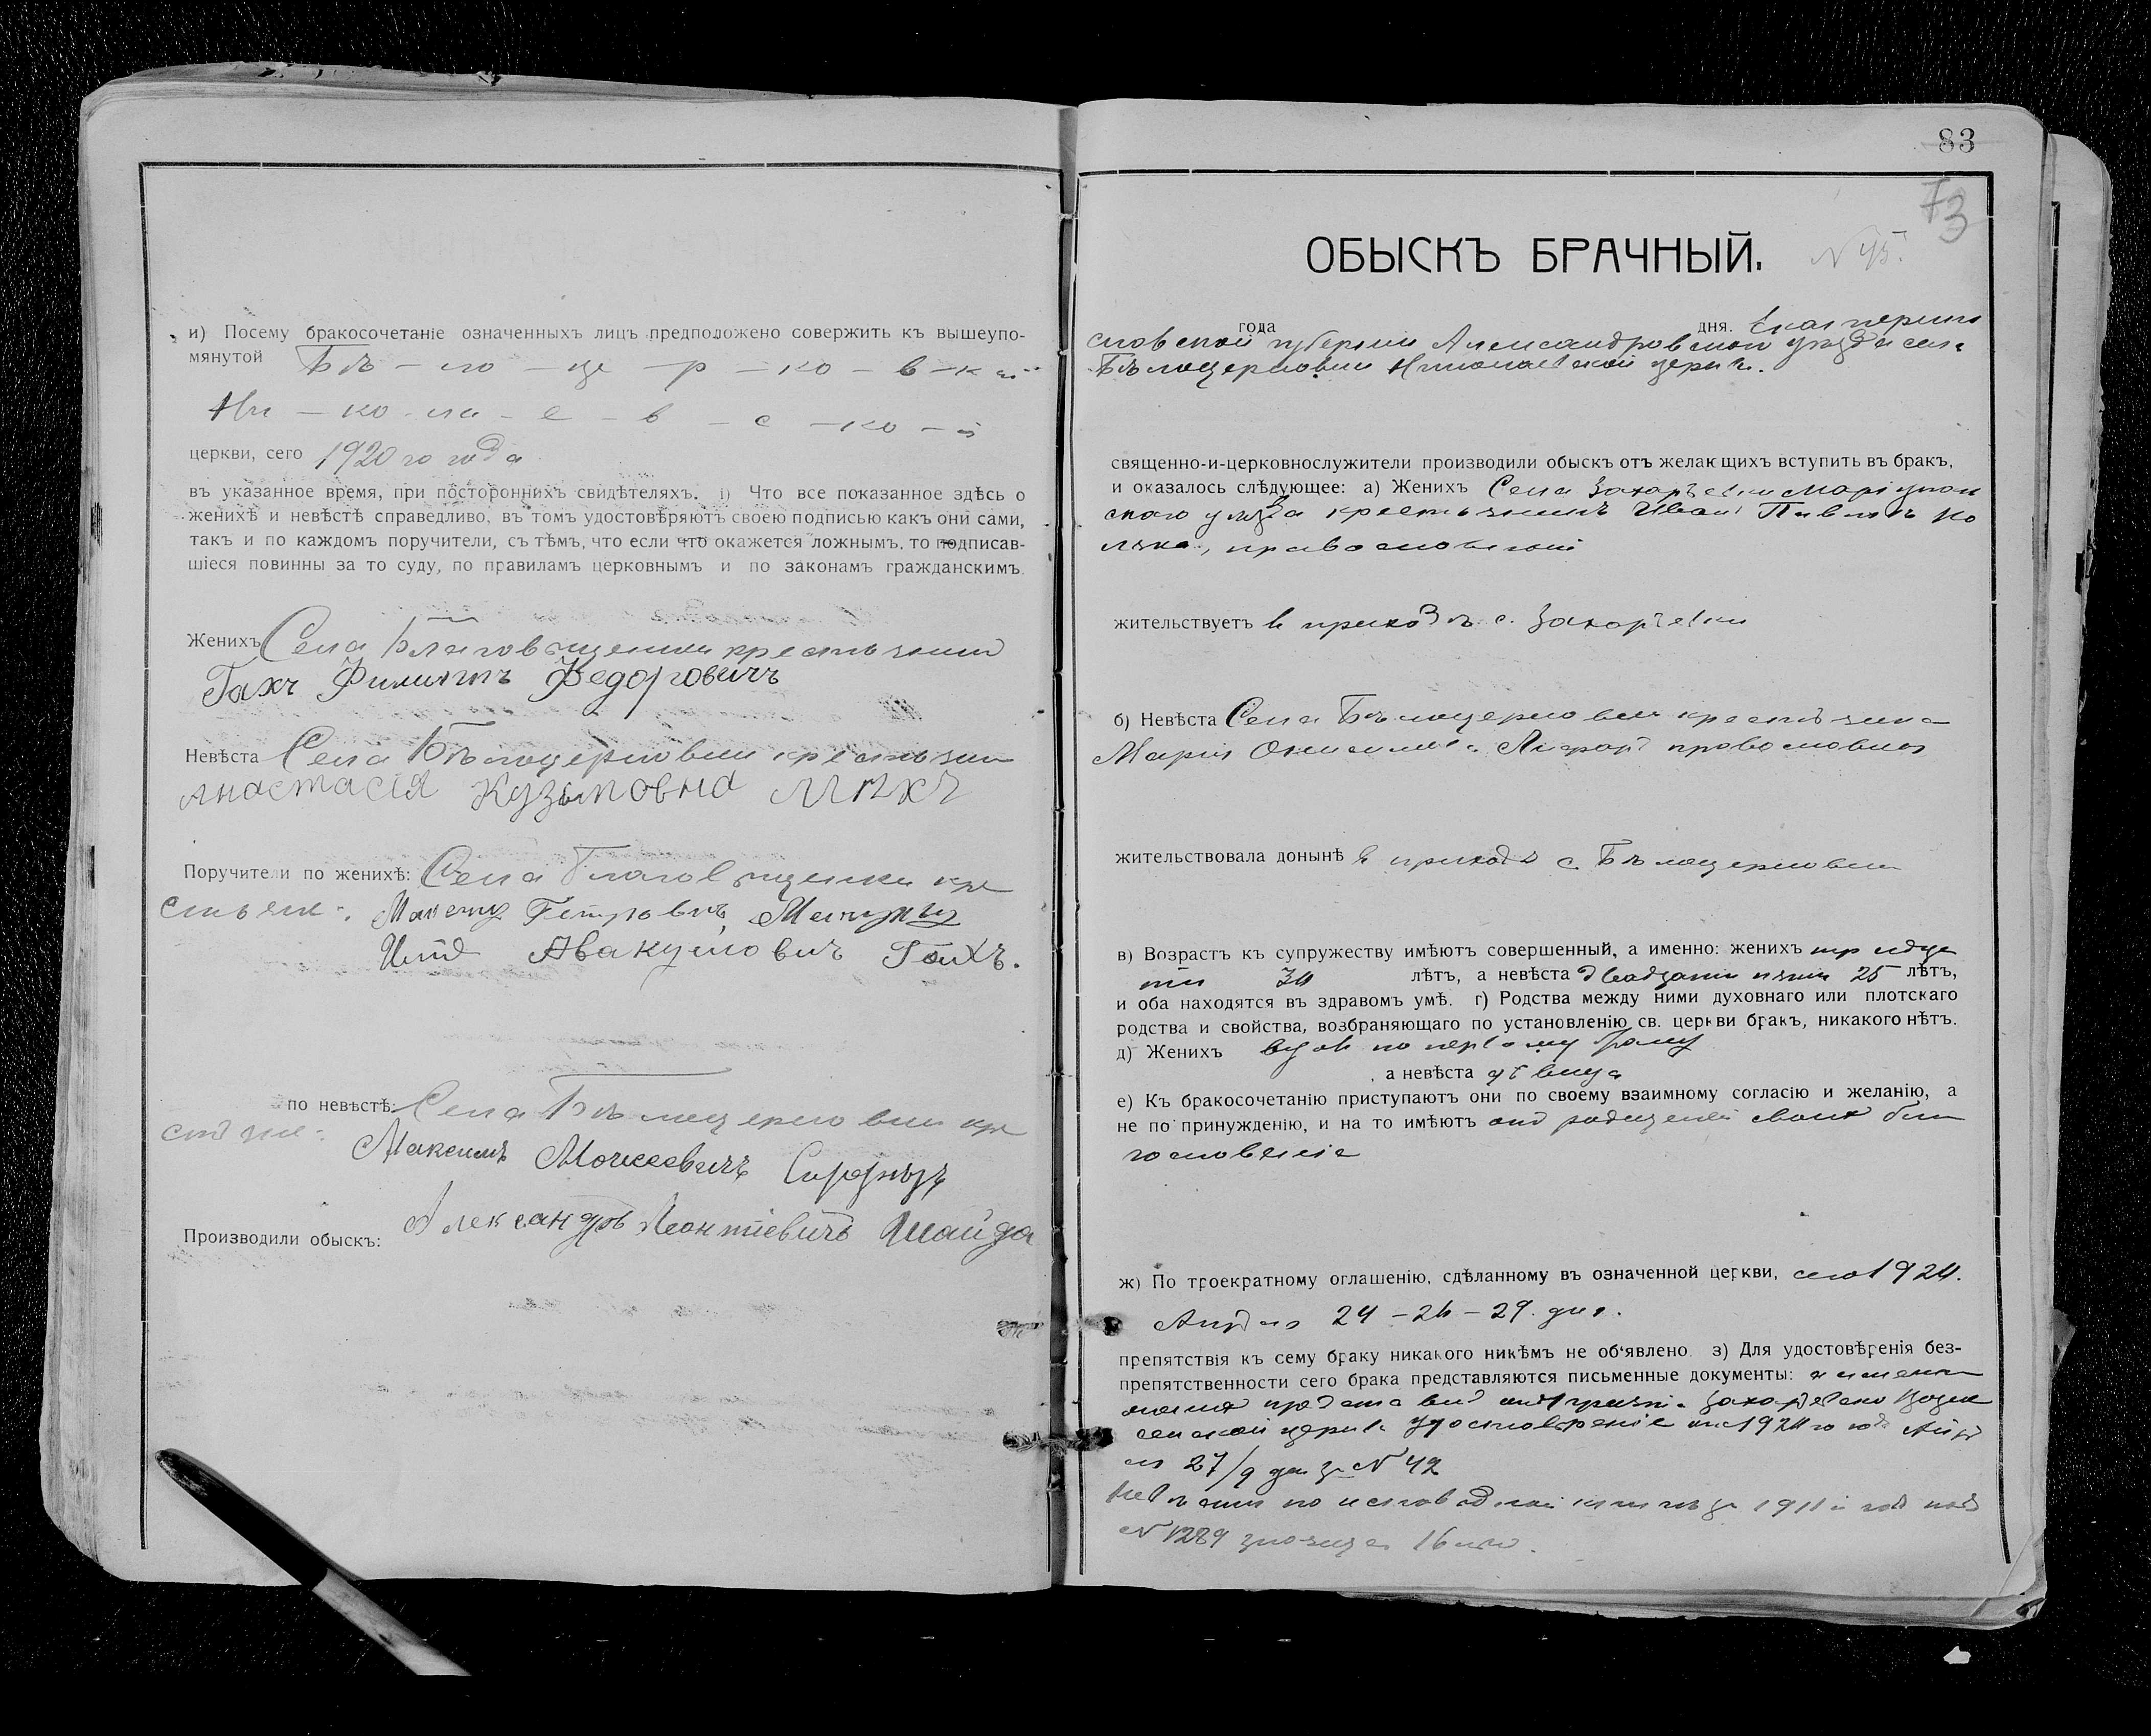 и) Посему бракосочетаніе означенныхъ лицъ предположено совержить къ вышеупо-
мянутой Бѣ – ло – це – р – ко – в – к
Ни – ко – ла – е – в – с – ко – й
церкви, сего 1920 го года
въ указанное время, при постороннихъ свидѣтеляхъ. і) Что все показанное здѣсь о
женихѣ и невѣстѣ справедливо, въ томъ удостовѣряютъ своею подписью какъ они сами,
такъ и по каждомъ поручители, съ тѣмъ, что если что окажется ложнымъ, то подписав-
шіеся повинны за то суду, по правиламъ церковнымъ и по законамъ гражданскимъ.
Женихъ Села Благовѣщенки крестьянин
Гахъ Филиппъ Федоровичъ
Невѣста Села Бѣлоцерковки крестьян
Анастасія Кузьмовна
Поручители по женихѣ: Села Благовѣщенки кре
стьяне: Петровичъ
Авакумович Гахъ.
по невѣстѣ: Села Бѣлоцерковки кре
Максимъ Моисеевичъ
Александръ Леонтіевичъ Шайда
Производили обыскъ:
83
73
ОБЫСКЪ БРАЧНЫЙ.
N 45.
года дня. Екатерино
славской губерніи Александровскаго уѣзда села
Бѣлоцерковки Николаевской церкви.
священно-и-церковнослужители производили обыскъ отъ желающихъ вступить въ бракъ,
и оказалось слѣдующее: а) Женихъ Села Захарьевки Маріуполь
скаго уѣзда крестьянинъ Иван Павловъ Ко
православный
жительствуетъ в приходѣ с. Захарьевки
б) Невѣста Села Бѣлоцерковки крестьянка
Марія православная
жительствовала донынѣ в приходѣ с Бѣлоцерковки
в) Возрастъ къ супружеству имѣютъ совершенный, а именно: женихъ тридца
ти 30 лѣтъ, а невѣста двадцати пяти 25 лѣтъ,
и оба находятся въ здравомъ умѣ. г) Родства между ними духовнаго или плотскаго
родства и свойства, возбраняющаго по установленію св. церкви бракъ, никакого нѣтъ.
д) Женихъ вдов по первому браку
, а невѣста дѣвица
е) Къ бракосочетанію приступаютъ они по своему взаимному согласію и желанію, а
не по принужденію, и на то имѣютъ от родителей своих бла
гословеніе
ж) По троекратному оглашенію, сдѣланному въ означенной церкви, сего 1920.
Апрѣля 24 – 26 – 29. дня.
препятствія къ сему браку никакого никѣмъ не об'явлено. з) Для удостовѣренія без-
препятственности сего брака представляются письменные документы:
церкви удостовѣреніе от 1920 го года Апрѣ
ля 27/9 дня за N 42
Невѣста по исповѣдной книгѣ за 1911 й год под
N 1289 значится 16 лѣт.